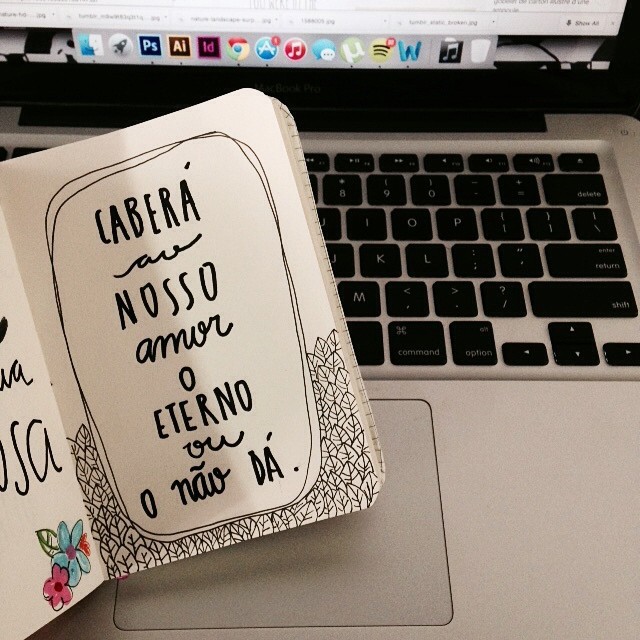 CABERÁ
ao
NOSSO
amor
O
ETERNO
ou
O não DÁ.
MacBook Pro
Show All
Ps
Ai
Id
delete
enter
return
shift
command
alt
option
I O P
K L
M